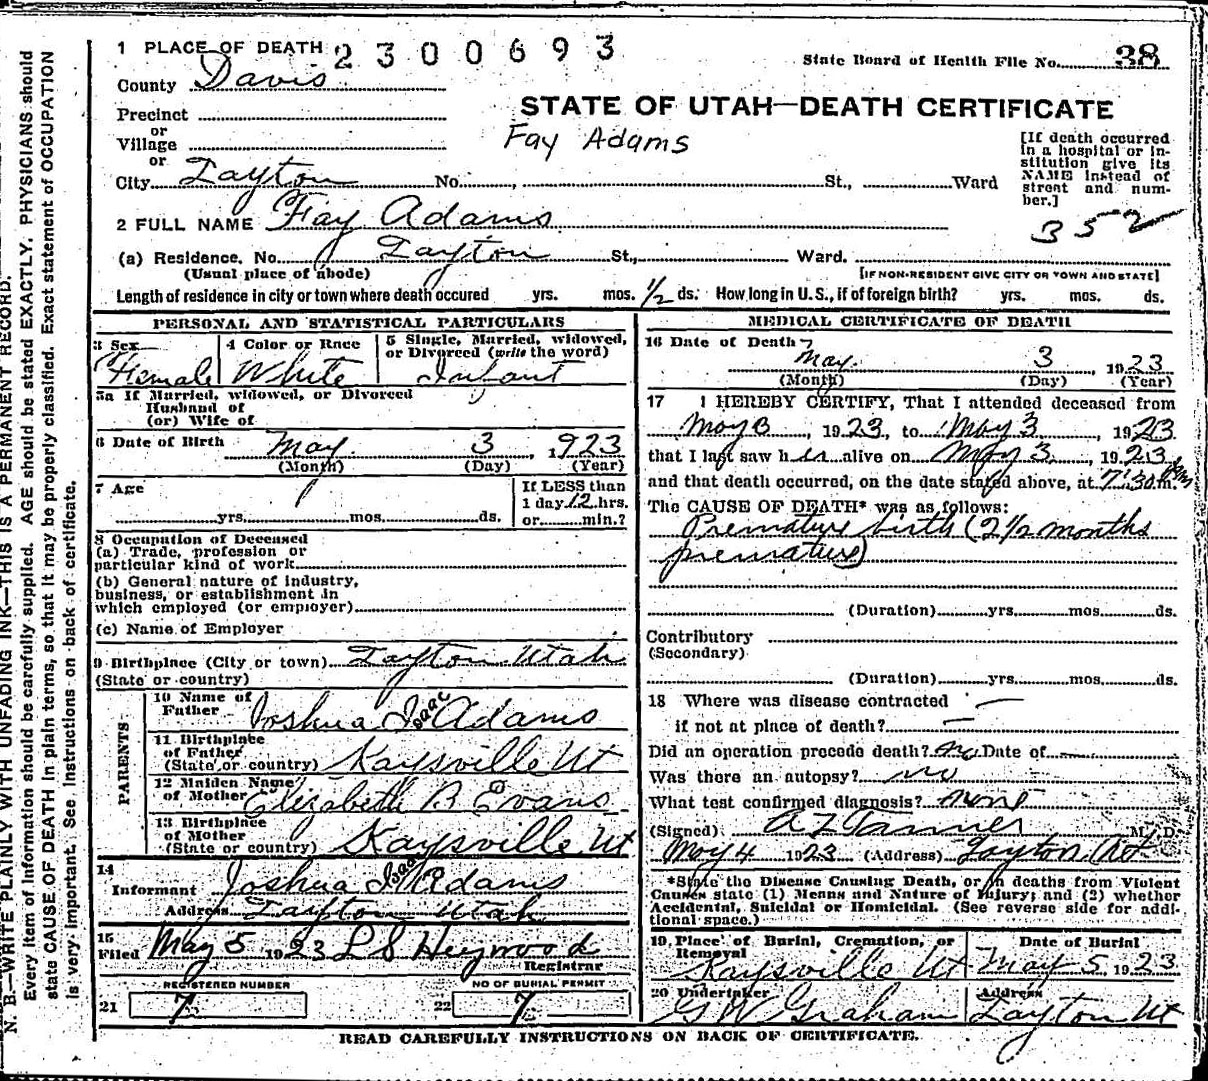 1 PLACE OF DEATH 2300693
State Board of Health File No. 38
County Davis
STATE OF UTAH—DEATH CERTIFICATE
Precinct
or
Village
or
Fay Adams
City Layton No. , St., Ward
[If death occurred in a hospital or institution give its NAME instead of street and number.]
2 FULL NAME Fay Adams
352
(a) Residence, No. Layton St., Ward.
(Usual place of abode)
[IF NON-RESIDENT GIVE CITY OR TOWN AND STATE]
Length of residence in city or town where death occured yrs. mos. 1/2 ds. How long in U. S., if of foreign birth? yrs. mos. ds.
PERSONAL AND STATISTICAL PARTICULARS
3 Sex Female
4 Color or Race White
5 Single, Married, widowed, or Divorced (write the word) Infant
5a If Married, widowed, or Divorced
Husband of
(or) Wife of
6 Date of Birth May 3, 1923
(Month) (Day) (Year)
7 Age
yrs. mos. ds.
If LESS than
1 day 12 hrs.
or min.?
8 Occupation of Deceased
(a) Trade, profession or
particular kind of work
(b) General nature of industry,
business, or establishment in
which employed (or employer)
(c) Name of Employer
9 Birthplace (City or town) Layton Utah
(State or country)
PARENTS
10 Name of
Father Joshua Isaac Adams
11 Birthplace
of Father
(State or country) Kaysville Ut
12 Maiden Name
of Mother Elizabeth B Evans
13 Birthplace
of Mother
(State or country) Kaysville Ut
14
Informant Joshua Isaac Adams
Address Layton Utah
15
Filed May 5 1923 L S Heywood
Registrar
REGISTERED NUMBER
21 7
NO OF BURIAL PERMIT
22 7
MEDICAL CERTIFICATE OF DEATH
16 Date of Death
May 3, 1923
(Month) (Day) (Year)
17 I HEREBY CERTIFY, That I attended deceased from
May 3, 1923, to May 3, 1923
that I last saw her alive on May 3, 1923
and that death occurred, on the date stated above, at 7:30 m.
The CAUSE OF DEATH* was as follows:
Premature birth (2 1/2 months
premature)
(Duration) yrs. mos. ds.
Contributory
(Secondary)
(Duration) yrs. mos. ds.
18 Where was disease contracted —
if not at place of death? —
Did an operation precede death? no Date of —
Was there an autopsy? no
What test confirmed diagnosis? none
(Signed) A Z Tanner M. D.
May 4 1923 (Address) Layton Ut
*State the Disease Causing Death, or in deaths from Violent
Causes state (1) Means and Nature of Injury; and (2) whether
Accidental, Suicidal or Homicidal. (See reverse side for additional space.)
19 Place of Burial, Cremation, or
Removal
Kaysville Ut
Date of Burial
May 5 1923
20 Undertaker
G W Graham
Address
Layton Ut
READ CAREFULLY INSTRUCTIONS ON BACK OF CERTIFICATE.
N. B.—WRITE PLAINLY WITH UNFADING INK—THIS IS A PERMANENT RECORD.
Every item of information should be carefully supplied. AGE should be stated EXACTLY. PHYSICIANS should
state CAUSE OF DEATH in plain terms, so that it may be properly classified. Exact statement of OCCUPATION
is very important. See instructions on back of certificate.